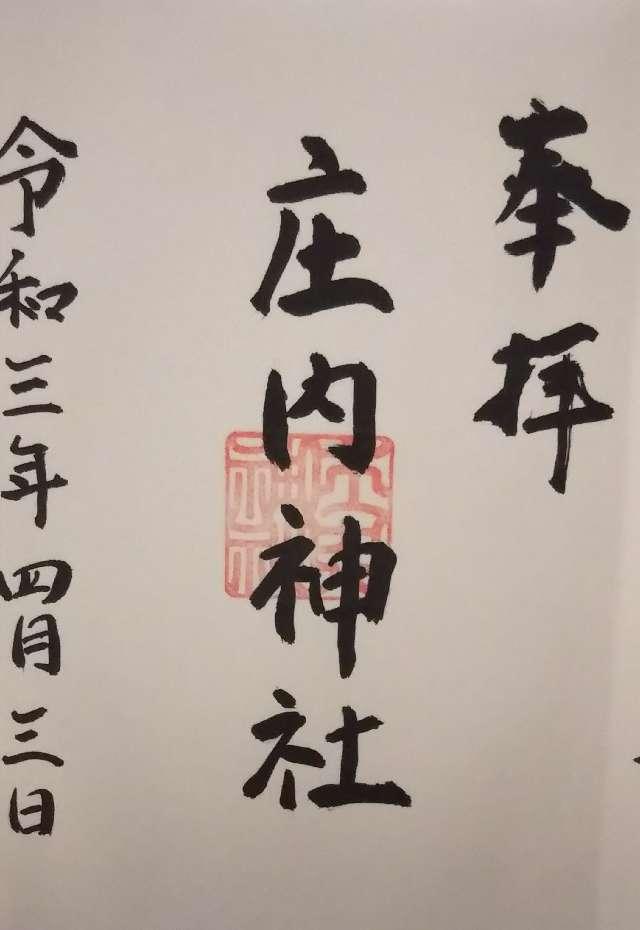 奉拝
庄内神社
令和三年四月三日